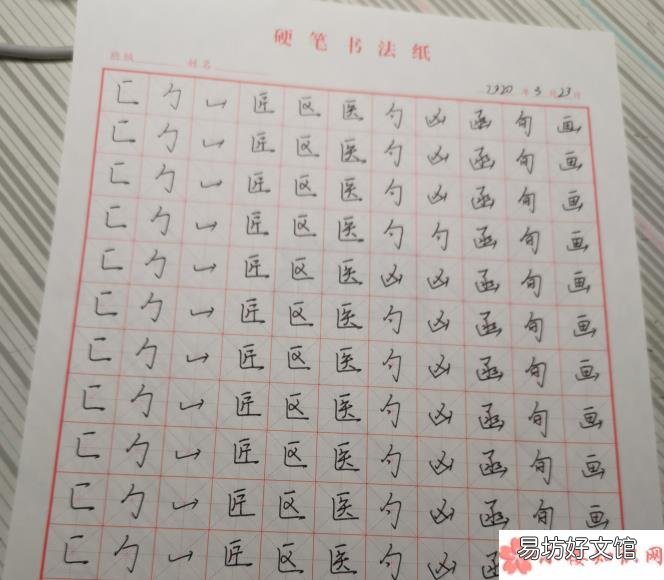 硬笔书法纸
班级 姓名 2020年3月23日
匚 勹 匠 区 医 勺 凶 函 旬 画
匚 勹 匠 区 医 勺 凶 函 旬 画
匚 勹 匠 区 医 勺 凶 函 旬 画
匚 勹 匠 区 医 勺 勺 函 旬 画
匚 勹 匠 区 医 凶 凶 函 旬 画
匚 勹 匠 区 医 勺 凶 函 旬 画
匚 勹 匠 区 医 勺 凶 函 旬 画
匚 勹 匠 区 医 勺 凶 函 旬 画
匚 勹 匠 区 医 勺 凶 函 旬 画
匚 勹 匠 区 医 勺 凶 函 旬 画
匚 勹 匠 区 医 勺 凶
易坊好文馆
网